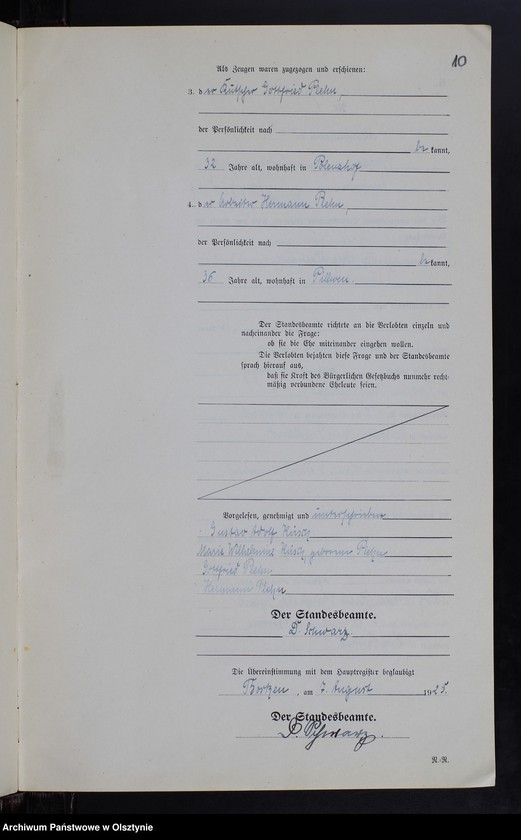 10
Als Zeugen waren zugezogen und erschienen:
3. der Kutscher Gottfried Rehn,
der Persönlichkeit nach
bekannt,
32 Jahre alt, wohnhaft in
4. der Arbeiter Hermann Rehn,
der Persönlichkeit nach
bekannt,
36 Jahre alt, wohnhaft in
Der Standesbeamte richtete an die Verlobten einzeln und
nacheinander die Frage:
ob sie die Ehe miteinander eingehen wollen.
Die Verlobten bejahten diese Frage und der Standesbeamte
sprach hierauf aus,
daß sie kraft des Bürgerlichen Gesetzbuchs nunmehr recht-
mäßig verbundene Eheleute seien.
Vorgelesen, genehmigt und unterschrieben
Gustav Adolf
Marie Wilhelmine geborene Rehn
Gottfried Rehn
Hermann Rehn
Der Standesbeamte.
Schwarz.
Die Übereinstimmung mit dem Hauptregister beglaubigt
am 7. August 1925.
Der Standesbeamte.
Schwarz.
R.-R.
Archiwum Państwowe w Olsztynie